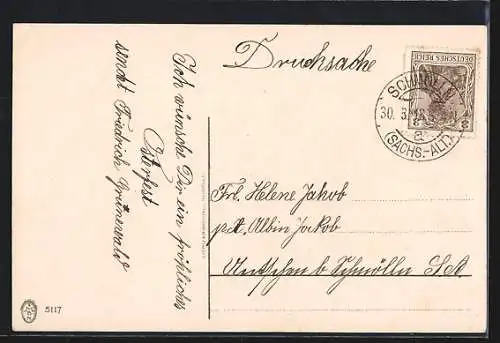 Drucksache
DEUTSCHES REICH
SCHMÖLLN
30. 3.
(SACHS.-ALT.)
a
Ich wünsche Dir ein fröhliches
Osterfest
sendet Friedrich Grünewald
Frl. Helene Jakob
p. A. Albin Jakob
b Schmölln S.-A.
5117